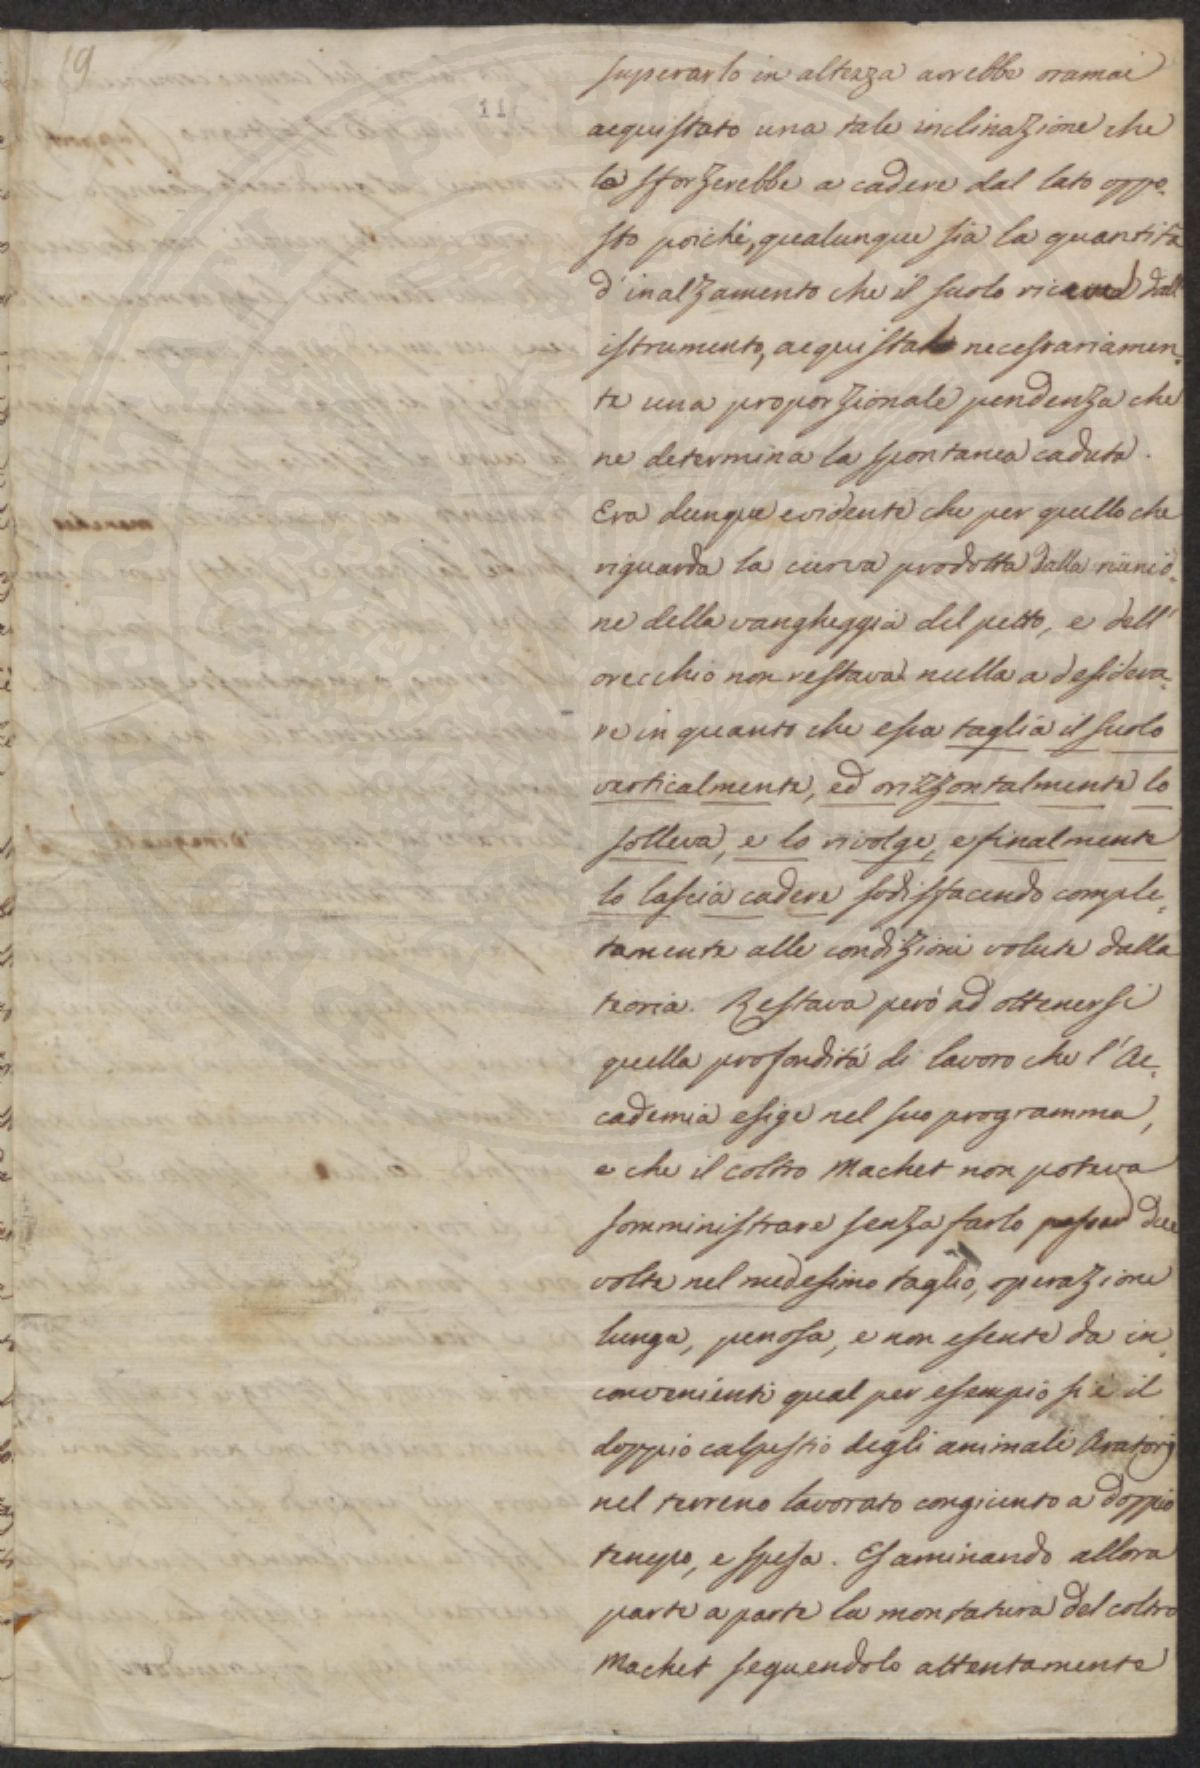 19
11
superarlo in altezza avrebbe oramai
acquistato una tale inclinazione che
lo sforzerebbe a cadere dal lato oppo-
sto poiché, qualunque sia la quantità
d'inalzamento che il suolo riceve dall'
istrumento, acquista necessariamen-
te una proporzionale pendenza che
ne determina la spontanea caduta.
Era dunque evidente che per quello che
riguarda la curva prodotta dalla riunio-
ne della vangheggia del petto, e dell'
orecchio non restava nulla a desidera-
re in quanto che essa taglia il suolo
verticalmente, ed orizzontalmente lo
solleva, e lo rivolge, e finalmente
lo lascia cadere sodisfacendo comple-
tamente alle condizioni volute dalla
teoria. Restava però ad ottenersi
quella profondità di lavoro che l'Ac-
cademia esige nel suo programma,
e che il coltro Machet non poteva
somministrare senza farlo passar due
volte nel medesimo taglio, operazione
lunga, penosa, e non esente da in-
convenienti qual per esempio si è il
doppio calpestio degli animali Aratorj
nel terreno lavorato congiunto a doppio
tempo, e spesa. Esaminando allora
parte a parte la montatura del coltro
Machet seguendolo attentamente